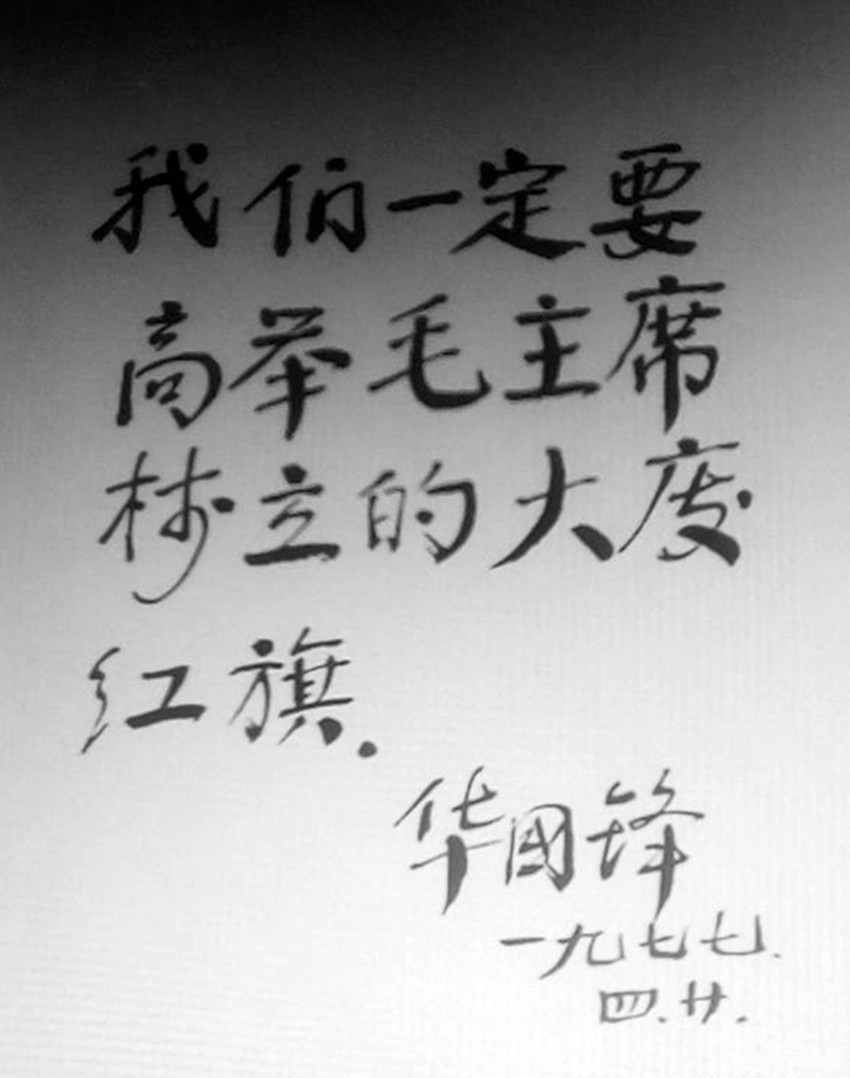 我们一定要
高举毛主席
树立的大庆
红旗.
华國锋
一九七七.
四.廿.